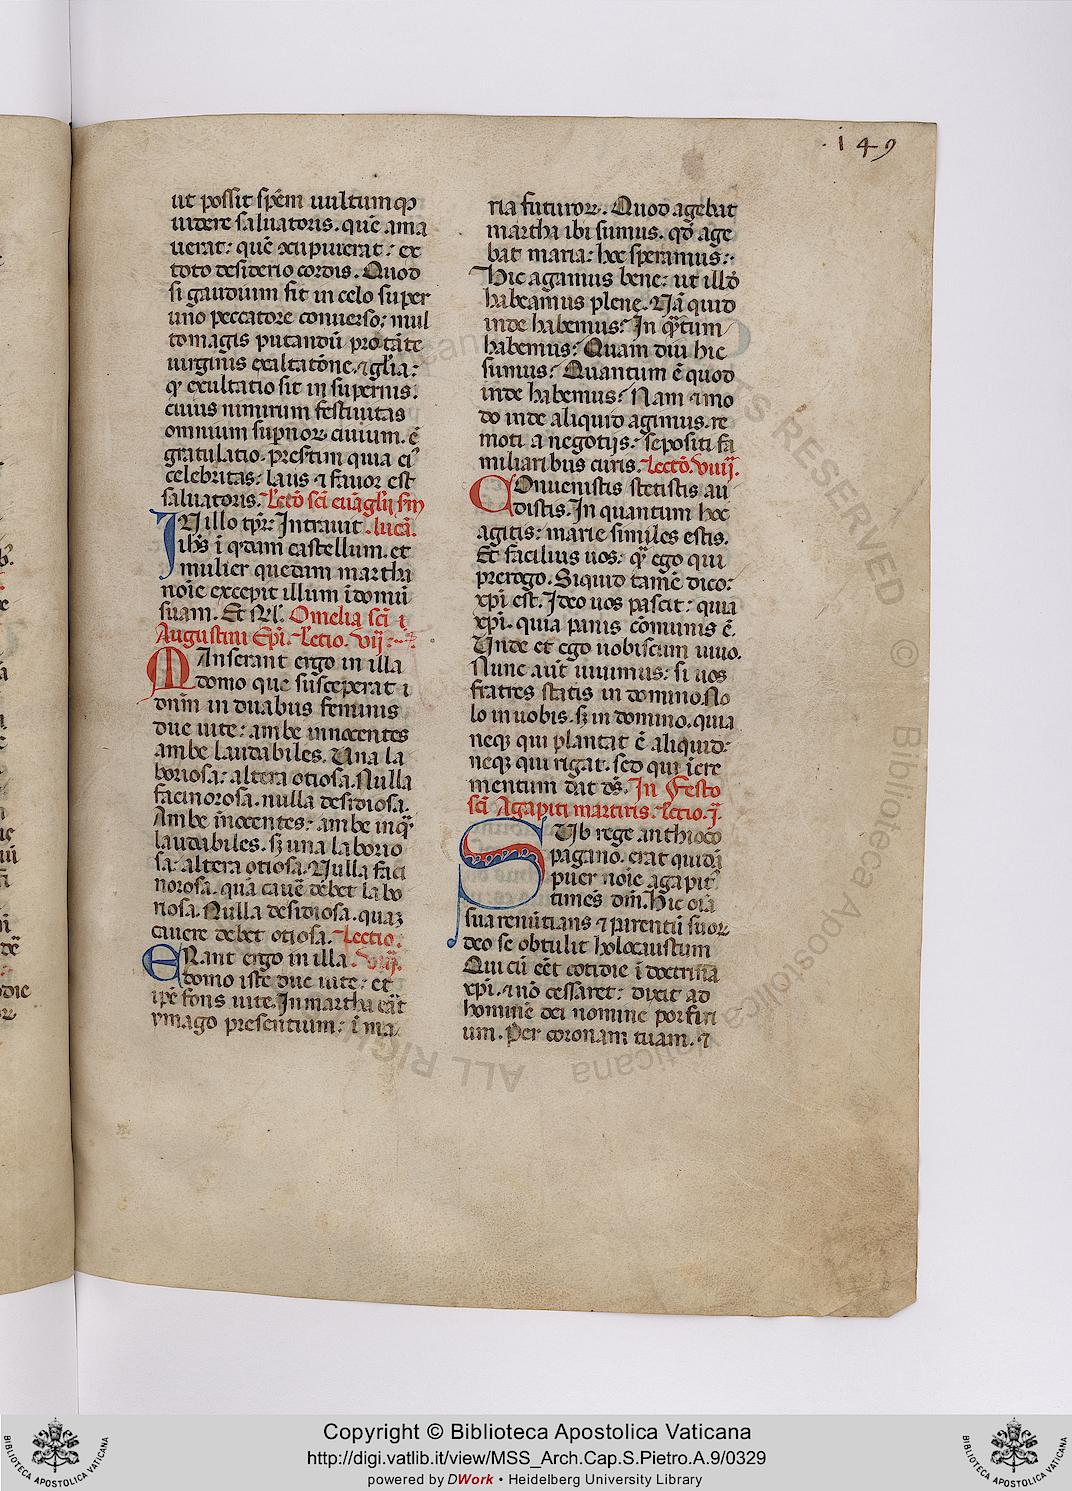 .149
ut possit spēm uultumqꝫ
uidere saluatoris. quē ama
uerat: quē ↄcupiuerat: ex
toto desiderio cordis. Quod
si gaudium fit in celo super
uno peccatore conuerso; mul
tomagis putandū pro tāte
uirginis exaltatōne. ⁊ gl̄ia:
qͥ exultatio sit in supernis.
cuius nimirum festiuitas
omnium supnoꝝ ciuium. ē
gratulatio. prestim quia eiꝰ
celebritas: laus ⁊ fauor est
saluatoris. Lctō sc̄i euāglij scm̄
IN illo tp̄r Intrauit .lucā.
ihs̄ ī qͣdam castellum. et
mulier quedam martha
noīe excepit illum ī domū
suam. Et rl̄. Omelia sc̄i
Augustini Ep̄i. Lectio. vij
MInserant ergo in illa
domo que susceperat
dnm̄ in duabus feminis
due uite: ambe innocentes
ambe laudabiles. Una la
boriosa: altera otiosa. Nulla
facinorosa. nulla desidiosa.
Ambe īnocentes: ambe inqͣ
laudabiles. sꝫ una laborio
sa: altera otiosa. Nulla faci
norosa. quā cauē debet labo
riosa. Nulla desidiosa. quaꝫ
cauere debet otiosa. Lectio.
ERant ergo in illa .viij.
domo iste due uite: et
ip̄e fons uite. In martha eāt
ymago presentium: ī ma
ria futuroꝝ. Quod agebat
martha ibi sumus. qd̄ age
bat maria: hoc speramus:
Hic agamus bene: ut illd̄
habeamus plene. Nā quid
inde habemus? In qͣtum
habemus? Quam diu hic
sumus? Quantum ē quod
inde habemus? Nam ⁊ mo
do inde aliquid agimus. re
moti a negotijs: sepositi fa
miliaribus curis. Lectō. viiij.
COnuenistis stetistis au
distis. In quantum hoc
agitis: marie similes estis.
Et facilius uos: qͣ ego qui
prerogo. Siquid tamē dico:
xp̄i est. Ideo uos pascit: quia
xp̄i. quia panis cōmunis ē.
Unde et ego uobiscum uiuo.
Nunc aut̄ uiuimus: si uos
fratres statis in domino. No
lo in uobis. sꝫ in domino. quia
neqꝫ qui plantat ē aliquid:
neqꝫ qui rigat. sed qui īcre
mentum dat ds̄. In Festo
sc̄i Agapiti martiris. Lectio. j.
SUb rege anthioco
pagano. erat quidā
puer noīe agapitꝰ
timēs dm̄. Hic oīa
sua renūtians ⁊ parentū suoꝝ
deo se obtulit holocaustum
Qui cū eēt cotidie ī doctrina
xp̄i. ⁊ nō cessaret: dixit ad
hominē dei nomine porfiri
um. Per coronam tuam. ⁊
© Biblioteca Apostolica Vaticana
ALL RIGHTS RESERVED
BIBLIOTECA APOSTOLICA VATICANA
Copyright © Biblioteca Apostolica Vaticana
http://digi.vatlib.it/view/MSS_Arch.Cap.S.Pietro.A.9/0329
powered by DWork • Heidelberg University Library
BIBLIOTECA APOSTOLICA VATICANA